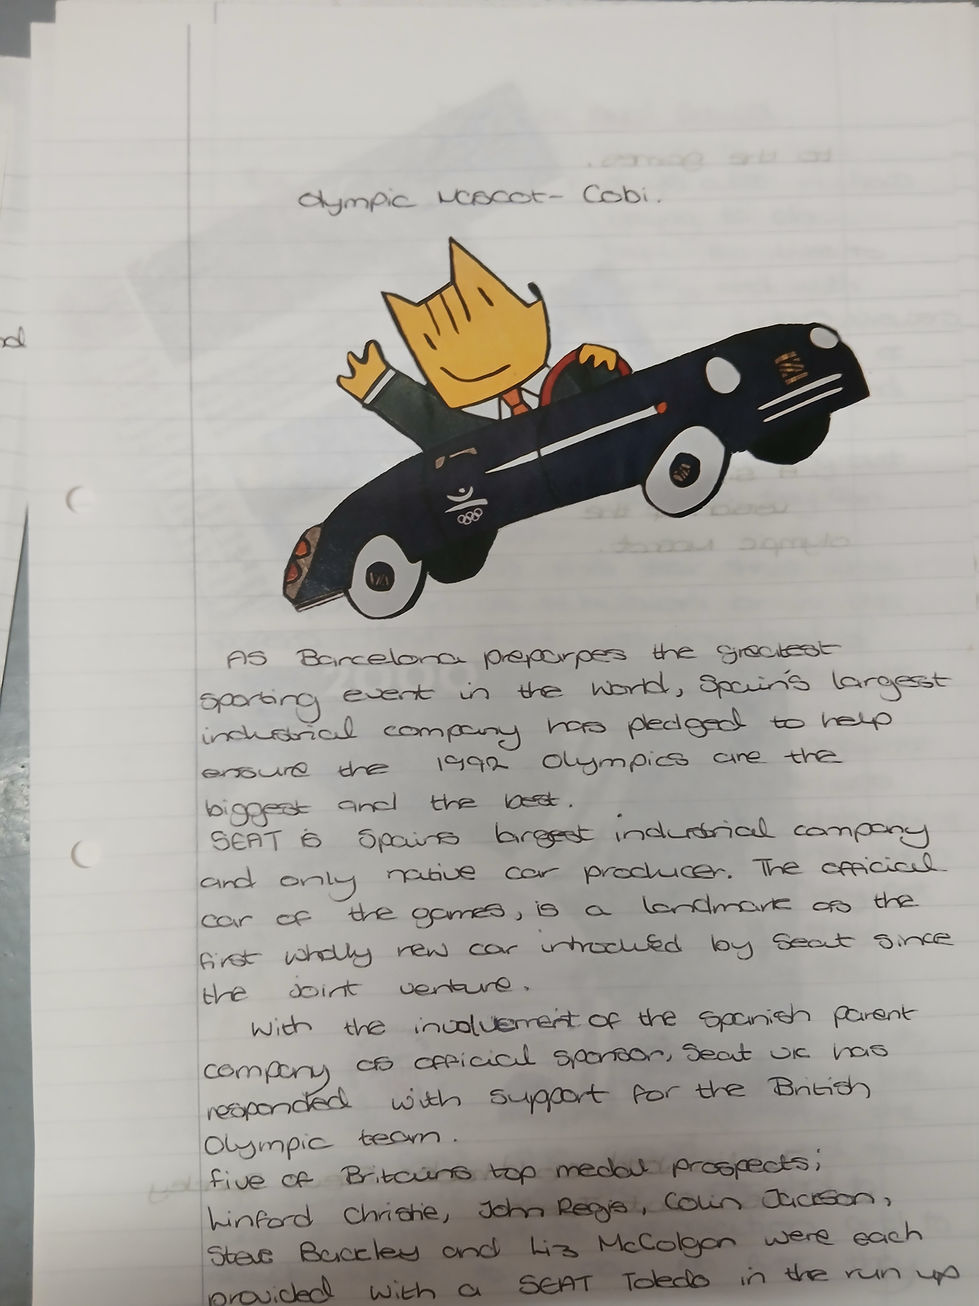 Olympic Mascot - Cobi.
As Barcelona preparpes the greatest
sporting event in the world, Spain's largest
industrial company has pledged to help
ensure the 1992 Olympics are the
biggest and the best.
SEAT is Spains largest industrial company
and only native car producer. The official
car of the games, is a landmark as the
first wholly new car introduced by Seat since
the joint venture.
With the involvement of the Spanish parent
company as official sponsor, Seat UK has
responded with support for the British
Olympic team.
five of Britains top medal prospects;
Linford Christie, John Regis, Colin Jackson,
Steve Backley and Liz McColgan were each
provided with a SEAT Toledo in the run up